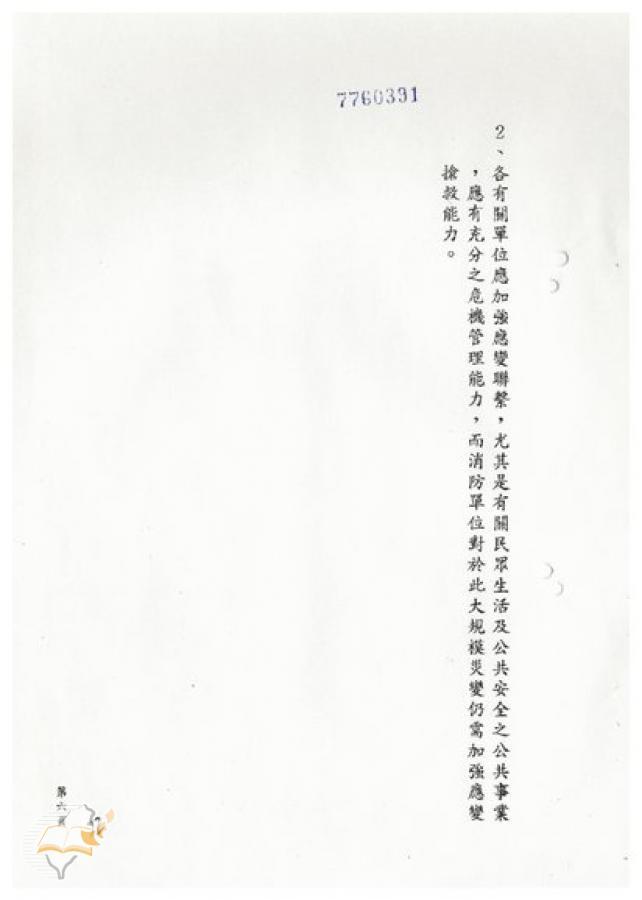 7760391
2、各有關單位應加強應變聯繫，尤其是有關民眾生活及公共安全之公共事業
，應有充分之危機管理能力，而消防單位對於此大規模災變仍需加強應變
搶救能力。
第六頁